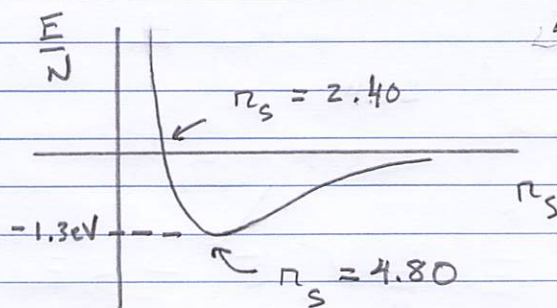 E/N
r_s = 2.40
r_s
-1.3eV
r_s = 4.80